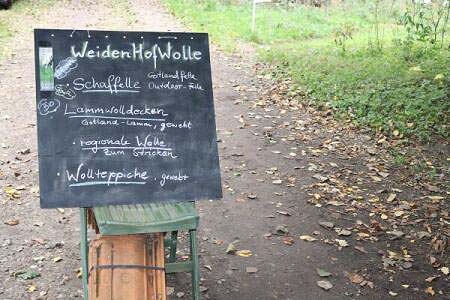 WeidenHofWolle
Schaffelle
Gotlandfelle
Outdoor-Felle
Lammwolldecken
Gotland-Lamm, gewebt
regionale Wolle
zum Stricken
Wollteppiche, gewebt